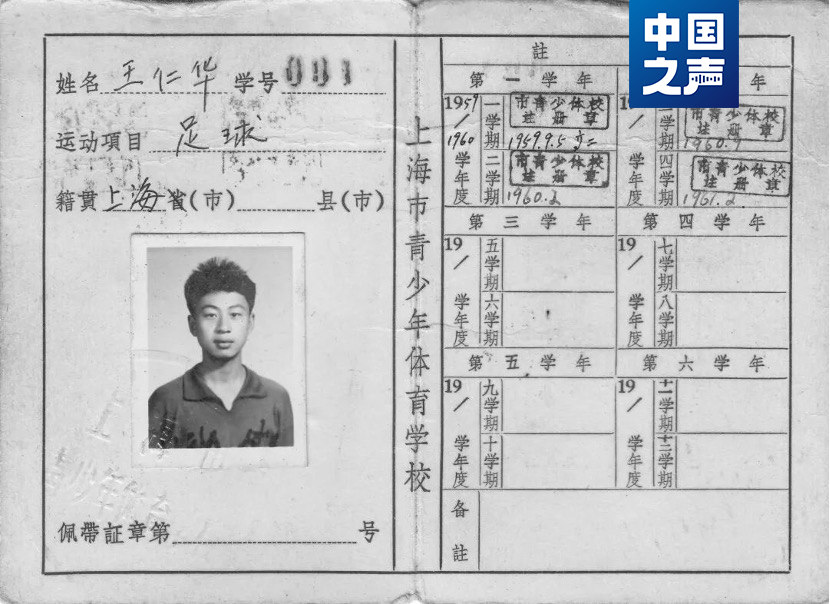 姓名 王仁华 学号 091
运动項目 足球
籍貫 上海省(市) 县(市)
佩带証章第 号
上海市青少年体育学校
註
第一学年
1959/1960学年度
一学期
市青少体校
註册章
1959.9.5
二学期
市青少体校
註册章
1960.2
年
19
市青少体校
註册章
1960.9
学年度
四学期
市青少体校
註册章
1961.2
第三学年
19 / 学年度
五学期
六学期
第四学年
19 / 学年度
七学期
八学期
第五学年
19 / 学年度
九学期
十学期
第六学年
19 / 学年度
十一学期
十二学期
备註
中国之声